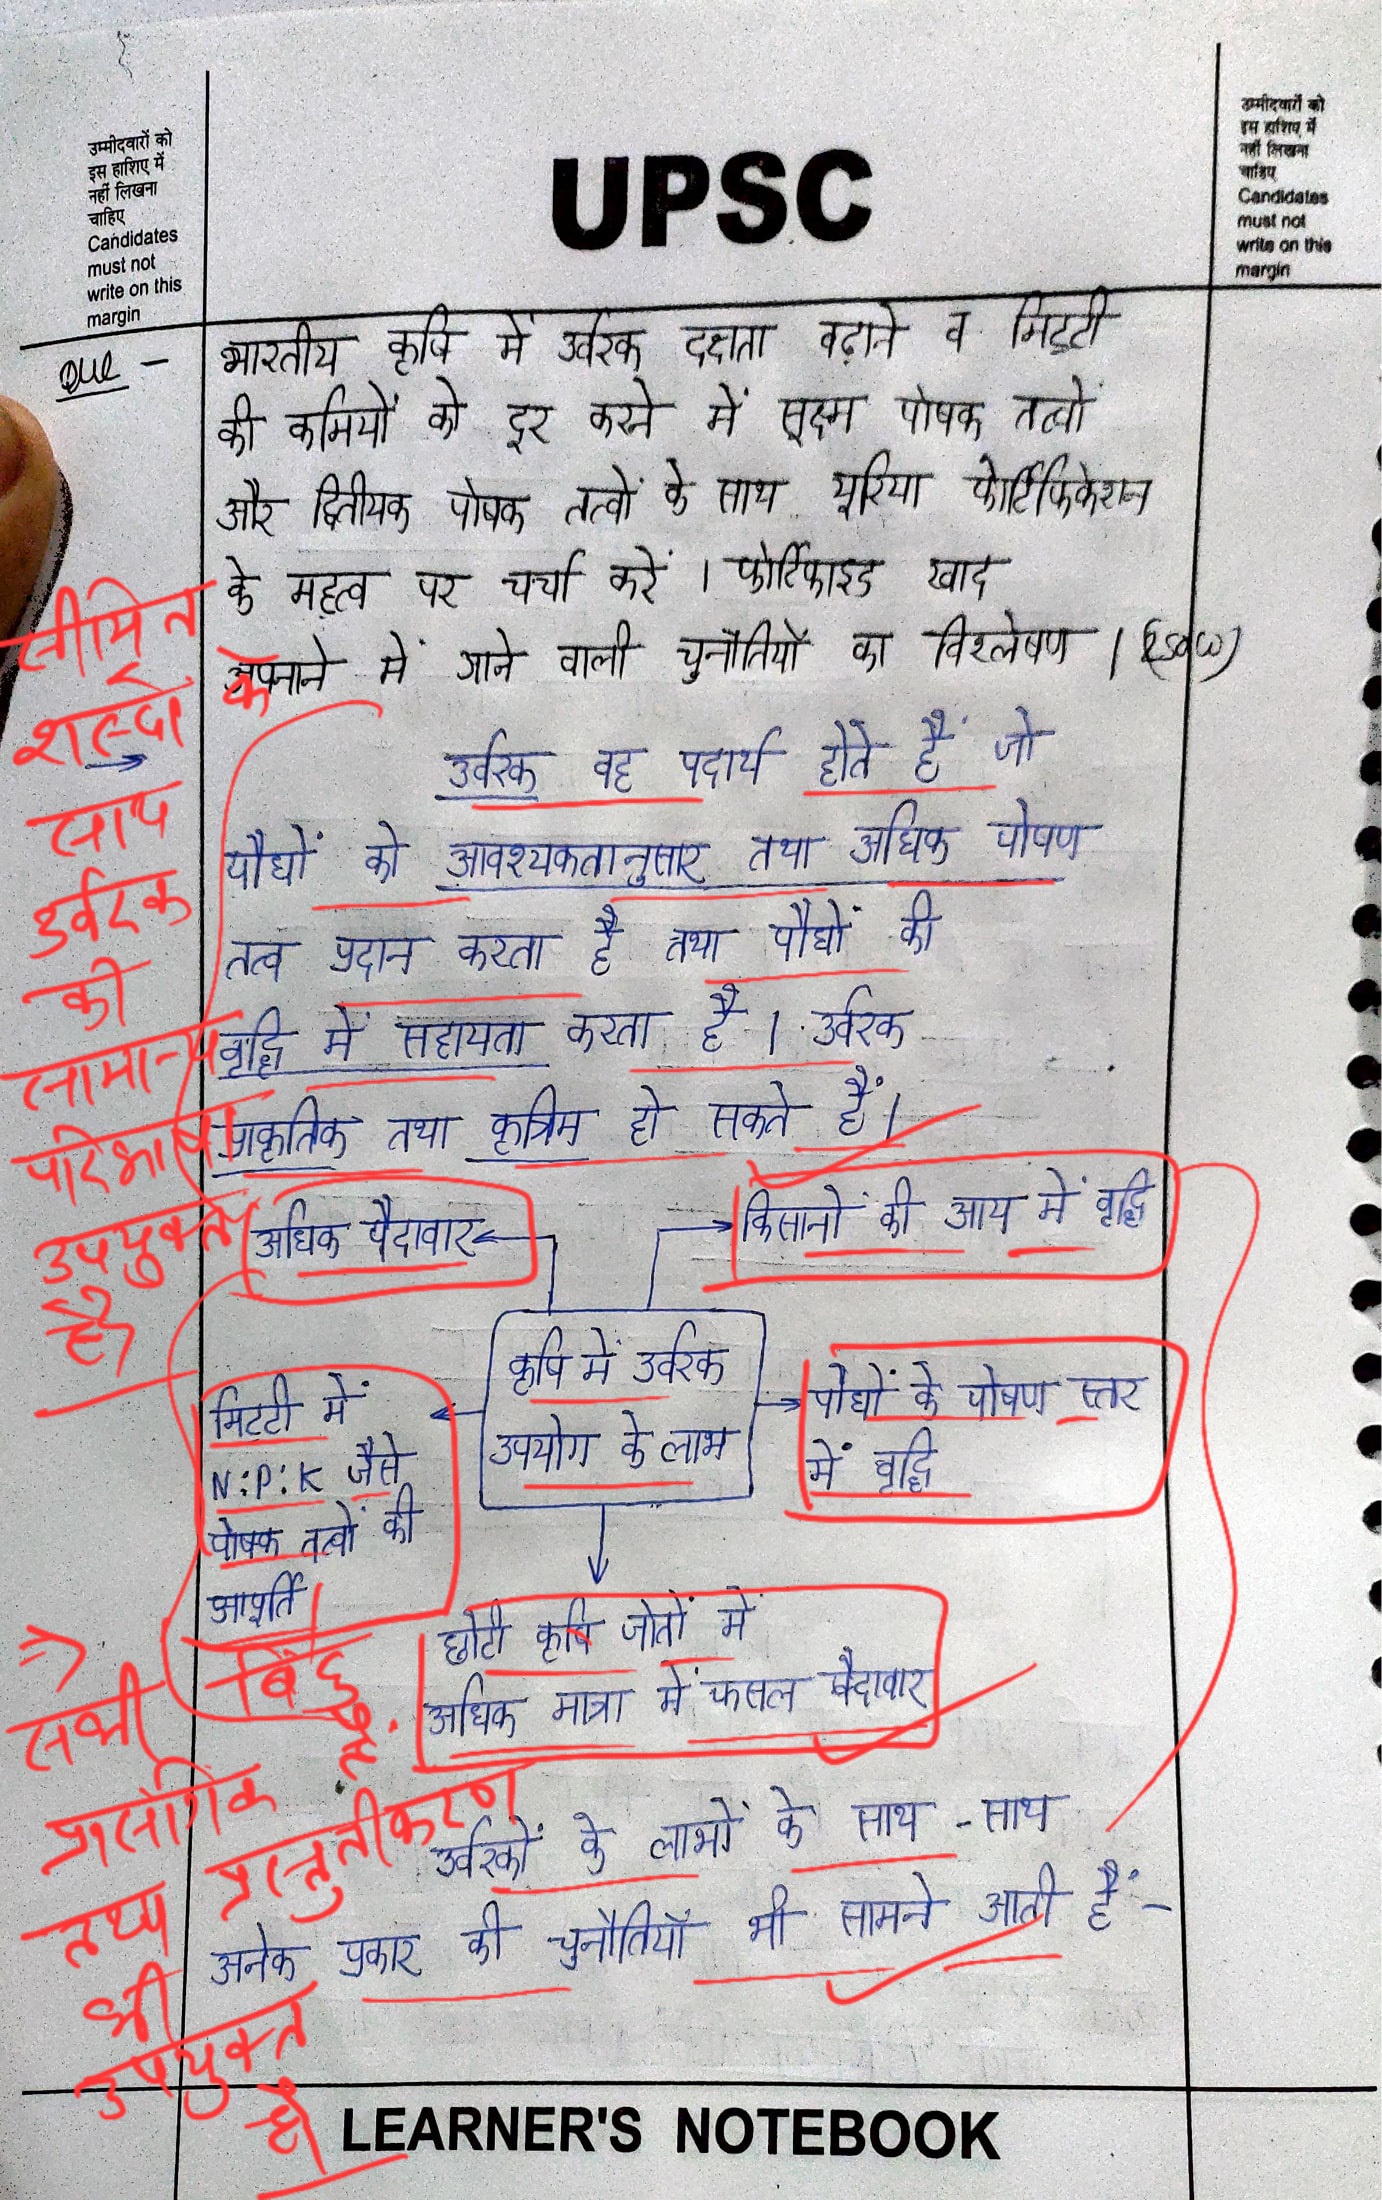 उम्मीदवारों को
इस हाशिए में
नहीं लिखना
चाहिए
Candidates
must not
write on this
margin
UPSC
उम्मीदवारों को
इस हाशिए में
नहीं लिखना
चाहिए
Candidates
must not
write on this
margin
Que -
भारतीय कृषि में उर्वरक दक्षता बढ़ाने व मिट्टी
की कमियों को दूर करने में सूक्ष्म पोषक तत्वों
और द्वितीयक पोषक तत्वों के साथ यूरिया फोर्टिफिकेशन
के महत्व पर चर्चा करें । फोर्टिफाइड खाद
अपनाने में आने वाली चुनौतियों का विश्लेषण ।
उर्वरक वह पदार्थ होते हैं जो
पौधों को आवश्यकतानुसार तथा अधिक पोषण
तत्व प्रदान करता है तथा पौधों की
वृद्धि में सहायता करता है । उर्वरक
प्राकृतिक तथा कृत्रिम हो सकते हैं ।
सीमित
शब्दों के
साथ
उर्वरक
की
सामान्य
परिभाषा
उपयुक्त
है
अधिक पैदावार
किसानों की आय में वृद्धि
कृषि में उर्वरक
उपयोग के लाभ
मिटटी में
N:P:K जैसे
पोषक तत्वों की
आपूर्ति
पौधों के पोषण स्तर
में वृद्धि
छोटी कृषि जोतों में
अधिक मात्रा में फसल पैदावार
सभी बिंदु
प्रासंगिक है.
तथ्य प्रस्तुतीकरण
भी
उपयुक्त
है
उर्वरकों के लाभों के साथ - साथ
अनेक प्रकार की चुनौतियाँ भी सामने आती हैं:-
LEARNER'S NOTEBOOK